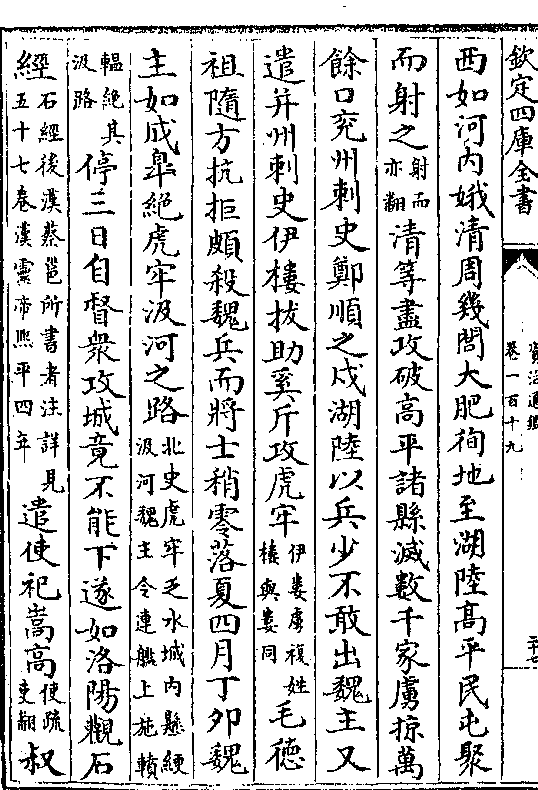 欽定四庫全書
資治通鑑
卷一百十九
西如河内娥清周幾閭大肥徇地至湖陸髙平民屯聚
而射之射而亦翻清等盡攻破高平諸縣滅數千家虜掠萬
餘口兖州刺史鄭順之戍湖陸以兵少不敢出魏主又
遣并州刺史伊樓拔助奚斤攻虎牢伊婁虜複姓樓與婁同毛徳
祖隨方抗拒頗殺魏兵而將士稍零落夏四月丁卯魏
主如成臯絶虎牢汲河之路北史虎牢乏水城内懸綆汲河魏主令連艦上施轒
轀絶其汲路停三日自督衆攻城竟不能下遂如洛陽觀石
經石經後漢蔡邕所書者注詳見五十七卷漢靈帝熙平四年遣使祀嵩高使疏吏翻叔